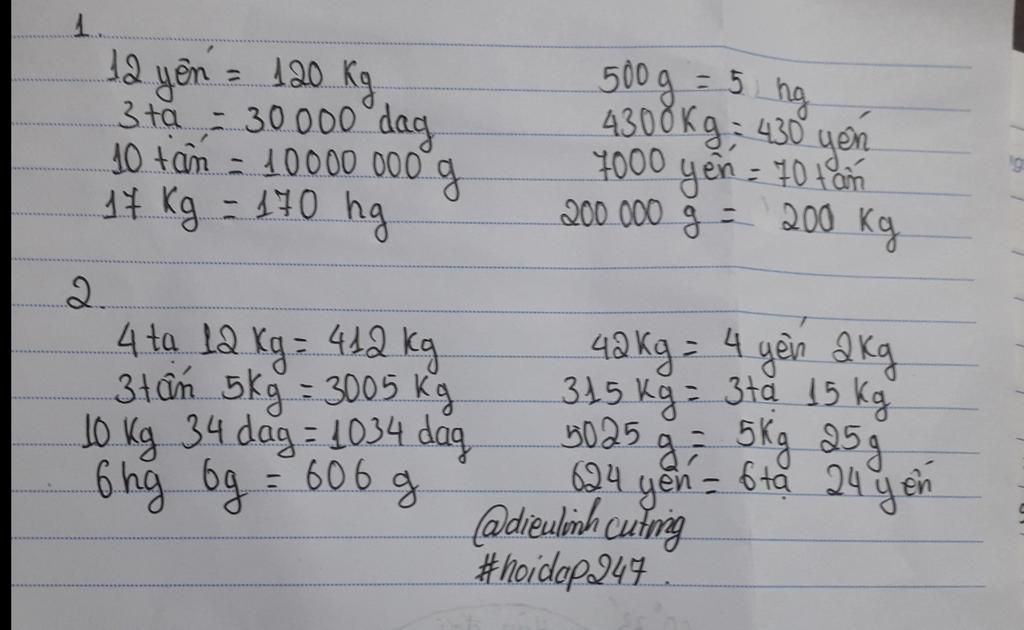 1.
12 yến = 120 Kg
500 g = 5 hg
3 tạ = 30 000 dag
4300 Kg = 430 yến
10 tấn = 10 000 000 g
7000 yến = 70 tấn
17 Kg = 170 hg
200 000 g = 200 Kg
2.
4 tạ 12 Kg = 412 Kg
42 Kg = 4 yến 2 Kg
3 tấn 5 Kg = 3005 Kg
315 Kg = 3 tạ 15 Kg
10 Kg 34 dag = 1034 dag
5025 g = 5 Kg 25 g
6 hg 6 g = 606 g
624 yến = 6 tạ 24 yến
@dieulinhcutnig
#hoidap247.